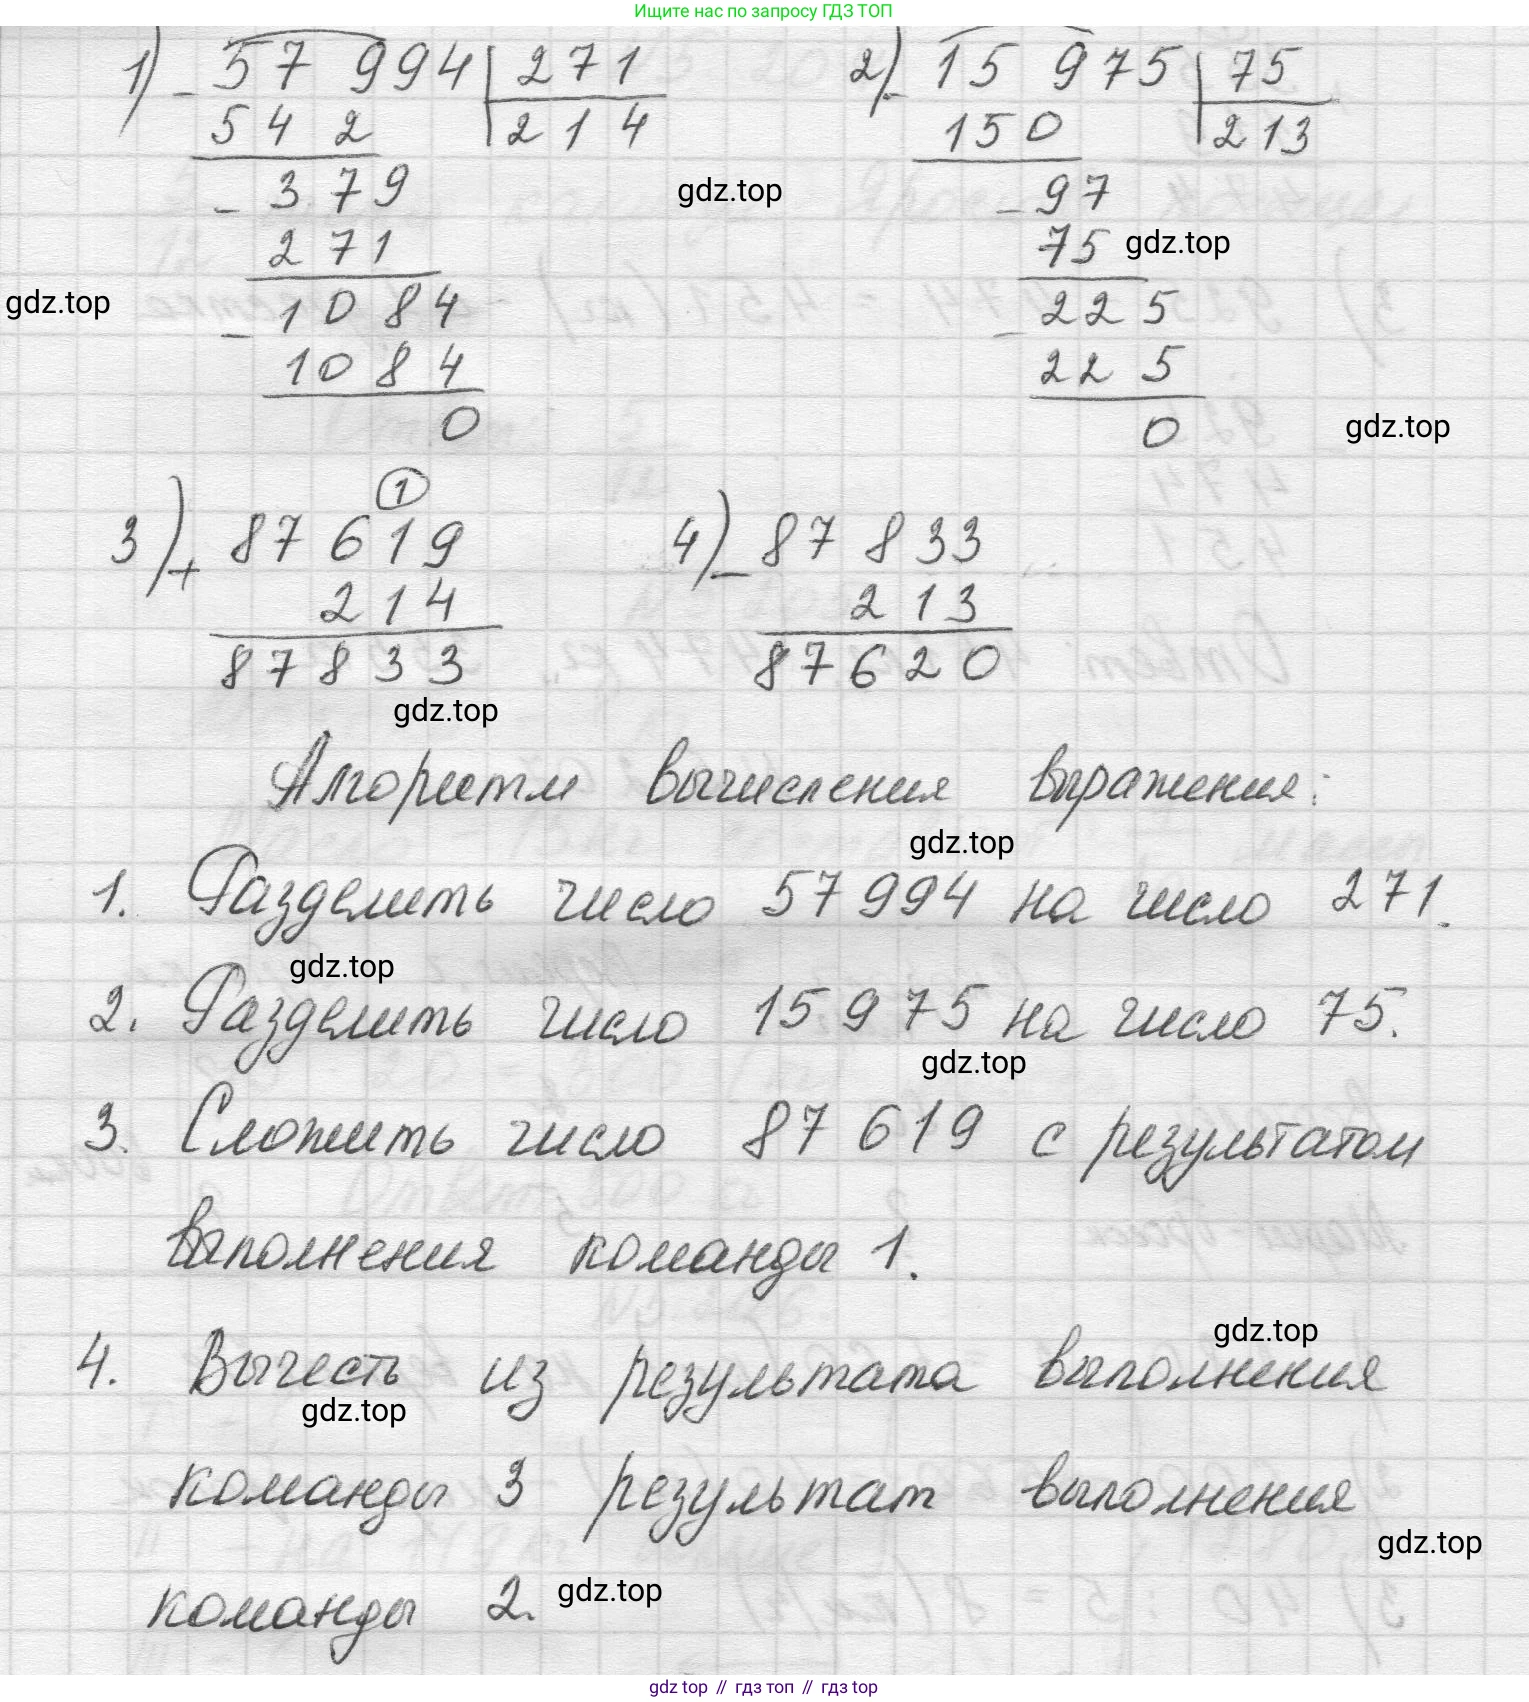 Ищите нас по запросу ГДЗ ТОП
1) - 57 994 | 271
542 | 214
- 379
271
- 1084
1084
0
2) - 15 975 | 75
150 | 213
- 97
75
- 225
225
0
gdz.top
gdz.top
gdz.top
gdz.top
3) + 87 619
1
214
87 833
4) - 87 833
213
87 620
gdz.top
Алгоритм вычисления выражения:
gdz.top
1. Разделить число 57 994 на число 271.
gdz.top
2. Разделить число 15 975 на число 75.
gdz.top
3. Сложить число 87 619 с результатом
выполнения команды 1.
gdz.top
4. Вычесть из результата выполнения
gdz.top
команды 3 результат выполнения
gdz.top
команды 2.
gdz.top
gdz top // гдз топ // gdz top